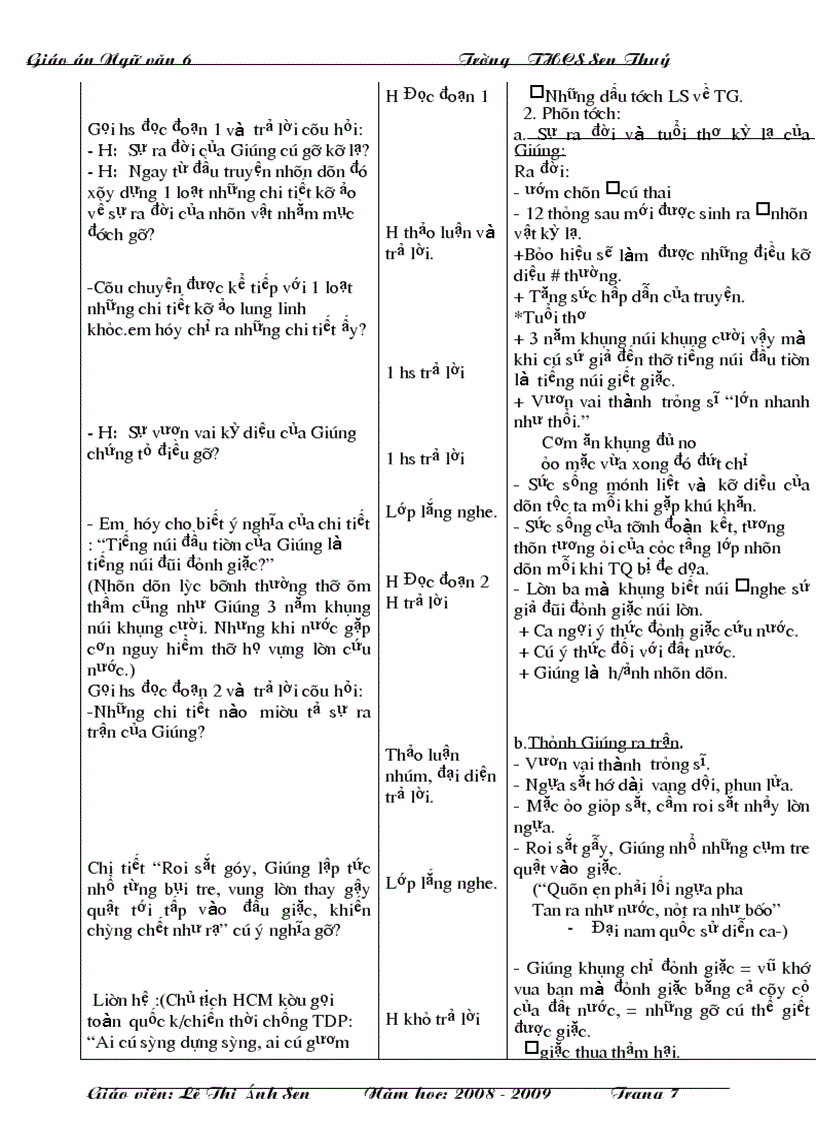 Giáo án Ngữ văn 6 Trờng THCS Sen Thuỷ
Gọi hs đọc đoạn 1 và trả lời cõu hỏi:
- H: Sự ra đời của Giúng cú gỡ kỡ lạ?
- H: Ngay từ đầu truyện nhõn dõn đó
xõy dựng 1 loạt những chi tiết kỡ ảo
về sự ra đời của nhõn vật nhằm mục
đớch gỡ?
-Cõu chuyện được kể tiếp với 1 loạt
những chi tiết kỡ ảo lung linh
khỏc.em hóy chỉ ra những chi tiết ấy?
- H: Sự vươn vai kỳ diệu của Giúng
chứng tỏ điều gỡ?
- Em hóy cho biết ý nghĩa của chi tiết
: “Tiếng núi đầu tiờn của Giúng là
tiếng núi đũi đỏnh giặc?”
(Nhõn dõn lỳc bỡnh thường thỡ õm
thầm cũng như Giúng 3 năm khụng
núi khụng cười. Nhưng khi nước gặp
cơn nguy hiểm thỡ họ vựng lờn cứu
nước.)
Gọi hs đọc đoạn 2 và trả lời cõu hỏi:
-Những chi tiết nào miờu tả sự ra
trận của Giúng?
Chi tiết “Roi sắt góy, Giúng lập tức
nhổ từng bụi tre, vung lờn thay gậy
quật tới tấp vào đầu giặc, khiến
chỳng chết như rạ” cú ý nghĩa gỡ?
Liờn hệ :(Chủ tịch HCM kờu gọi
toàn quốc k/chiến thời chống TDP:
“Ai cú sỳng dựng sỳng, ai cú gươm
H Đọc đoạn 1
H thảo luận và
trả lời.
1 hs trả lời
1 hs trả lời
Lớp lắng nghe.
H Đọc đoạn 2
H trả lời
Thảo luận
nhúm, đại diện
trả lời.
Lớp lắng nghe.
H khỏ trả lời
Những dấu tớch LS về TG.
2. Phõn tớch:
a. Sự ra đời và tuổi thơ kỳ lạ của
Giúng:
Ra đời:
- ướm chõn cú thai
- 12 thỏng sau mới được sinh ra nhõn
vật kỳ lạ.
+Bỏo hiệu sẽ làm được những điều kỡ
diệu # thường.
+ Tăng sức hấp dẫn của truyện.
*Tuổi thơ
+ 3 năm khụng núi khụng cười vậy mà
khi cú sứ giả đến thỡ tiếng núi đầu tiờn
là tiếng núi giết giặc.
+ Vươn vai thành trỏng sĩ “lớn nhanh
như thổi.”
Cơm ăn khụng đủ no
ỏo mặc vừa xong đó đứt chỉ
- Sức sống mónh liệt và kỡ diệu của
dõn tộc ta mỗi khi gặp khú khăn.
- Sức sống của tỡnh đoàn kết, tương
thõn tương ỏi của cỏc tầng lớp nhõn
dõn mỗi khi TQ bị đe dọa.
- Lờn ba mà khụng biết núi nghe sứ
giả đũi đỏnh giặc núi lờn.
+ Ca ngợi ý thức đỏnh giặc cứu nước.
+ Cú ý thức đối với đất nước.
+ Giúng là h/ảnh nhõn dõn.
b.Thỏnh Giúng ra trận.
- Vươn vai thành trỏng sĩ.
- Ngựa sắt hớ dài vang dội, phun lửa.
- Mặc ỏo giỏp sắt, cầm roi sắt nhảy lờn
ngựa.
- Roi sắt gẫy, Giúng nhổ những cụm tre
quật vào giặc.
(“Quõn ẹn phải lối ngựa pha
Tan ra như nước, nỏt ra như bốo”
- Đại nam quốc sử diễn ca-)
- Giúng khụng chỉ đỏnh giặc = vũ khớ
vua ban mà đỏnh giặc bằng cả cõy cỏ
của đất nước, = những gỡ cú thể giết
được giặc.
giặc thua thảm hại.
Giáo viên: Lê Thị Ánh Sen Năm học: 2008 - 2009 Trang 7